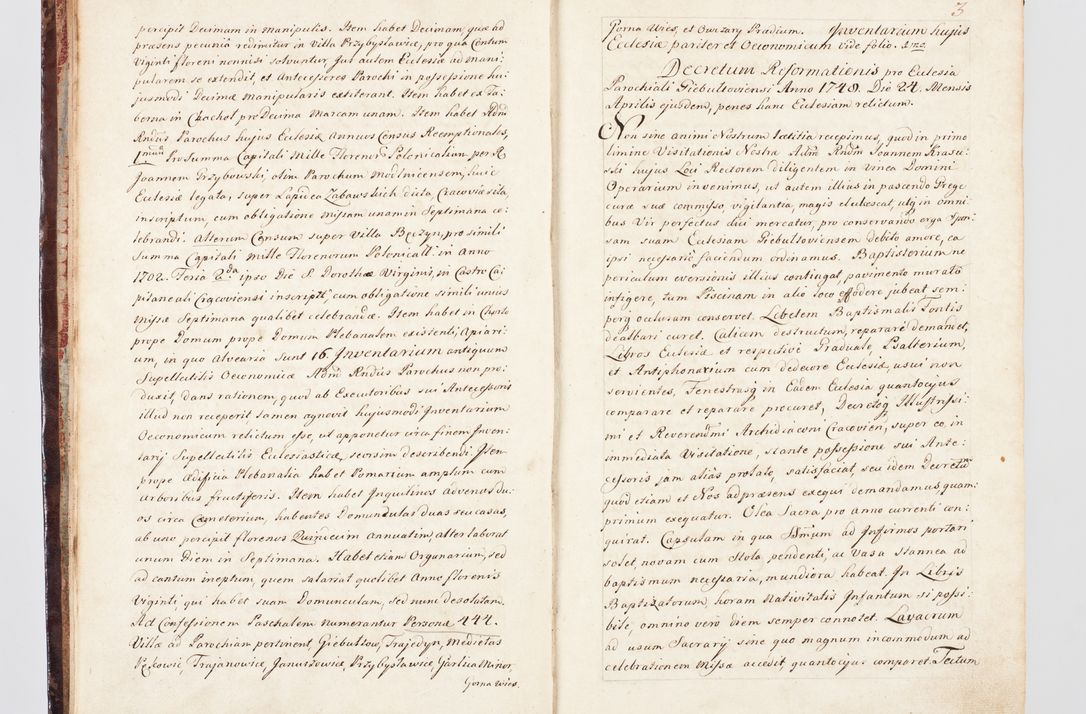 percipit Decimam in manipulis. Item habet Decimam, quæ ad
præsens pecunia redimitur in Villa Przybysławice, pro qua Centum
Viginti floreni nonnisi solvuntur, Jus autem Ecclesiæ ad mani-
pularem se extendit, et Antecessores Parochi in possessione hu-
jusmodi Decimæ manipularis extiterant. Item habet ex Ta-
berna in Chochol pro Decima Marcam unam. Item habet Admd
Rndus Parochus hujus Ecclesiæ annuos Census Reemptionales,
1mum Pro Summa Capitali Mille Florenor Polonicalium, per R
Joannem Grzybowski, olim Parochum Modlnicensem, huic
Ecclesiæ legata, super Lapidea Zabawskich dicta Cracoviæ sita,
inscriptum, cum obligatione missam unam in Septimana ce-
lebrandi. Alterum Censum super Villa Bęczyn, pro simili
Summa Capitali Mille Florenorum Polonicall in Anno
1702. Feria 2da ipso Die S. Dorotheæ Virginis, in Castro Ca-
pitaneali Cracoviensi inscript, cum obligatione simili unius
Missæ Septimana qualibet celebrandæ. Item habet in Chorto
prope Domum prope Domum Plebanalem existenti, Apiari-
um, in quo Alvearia sunt 16. Inventarium antiquum
Supellectilis Oeconomicæ Adm Rndus Parochus non pro-
duxit, dans rationem, quod ab Executoribus sui Antecessoris
illud non receperit, tamen agnovit hujusmodi Inventarium
Oeconomicum relictum esse, ut apponetur circa finem Inven-
tarij Supellectilis Ecclesiasticæ, seorsim describendi. Item
prope Ædificia Plebanalia habet Pomarium amplum cum
arboribus fructiferis. Item habet Inquilinos advenas du-
os circa Cæmeterium, habentes Domunculas duas seu casas,
ab uno percipit florenos Quindecim Annuatim, alter laborat
unum Diem in Septimana. Habet etiam Organarium, sed
ad cantum ineptum, quem salariat quolibet Anno florenis
Viginti, qui habet suam Domunculam, sed nunc desolatam.
Ad Confessionem Paschalem numerantur Personæ 444.
Villæ ad Parochiam pertinent Giebułtow, Trojedyn, Medietas
Pękowic, Trojanowice, Januszowice, Przybysławice, Garlica Minor,
Gorna Wies.
3
Gorna Wies, et Owczary Prædium. Inventarium hujus
Ecclesiæ pariter et Oeconomicum vide folio.
Decretum Reformationis pro Ecclesia
Parochiali Giebultoviensi Anno 1748. Die 24. Mensis
Aprilis ejusdem, penes hanc Ecclesiam relictum.
Non sine animi Nostrum lætitia recepimus, quod in primo
limine Visitationis Nostræ Adm Rndm Joannem Krasu-
ski hujus Loci Rectorem diligentem in Vinea Domini
Operarium invenimus, ut autem illius in pascendo Grege
curæ suæ commisso, vigilantia, magis elucescat, utq in omni-
bus Vir perfectus dici mereatur, pro conservando erga Spon-
sam suam Ecclesiam Giebultoviensem debito amore, ea
ipsi necessario faciendum ordinamus. Baptisterium ne
periculum eversionis illius contingat, pavimento murato
infigere, tum Piscinam in alio loco effodere jubeat sem-
perq oculuram conservet. Lebetem Baptismalis Fontis
dealbari curet. Calicem destructum, reparare demandet,
Libros Ecclesiæ et respective Graduale, Psalterium,
et Antiphonarium cum dedecore Ecclesiæ, usui non
servientes, Fenestrasq in Eadem Ecclesia quantocyus
comparare et reparare procuret, Decretoq Illustrissi-
mi et Reverendmi Archidiaconi Cracovien, super eo, in
immediata Visitatione, stante possessione sui Ante-
cessoris jam alias prolato, satisfaciat, seu idem Decretu
quod etiam et Nos ad præsens exequi demandamus, quam-
primum exequatur. Olea Sacra pro anno currenti con-
quirat. Capsulam in qua SSmum ad Infirmos portari
solet, novam cum Stola pendenti, ac Vasa Stannea ad
baptismum necessaria, mundiora habeat. In Libris
Baptizatorum, horam Nativitatis Infantum si possi-
bile, omnino vero Diem semper connotet. Lavacrum
ad usum Sacrarij sine quo magnum incommodum ad
celebrationem Missæ accessit, quantocyus comparet. Tectum